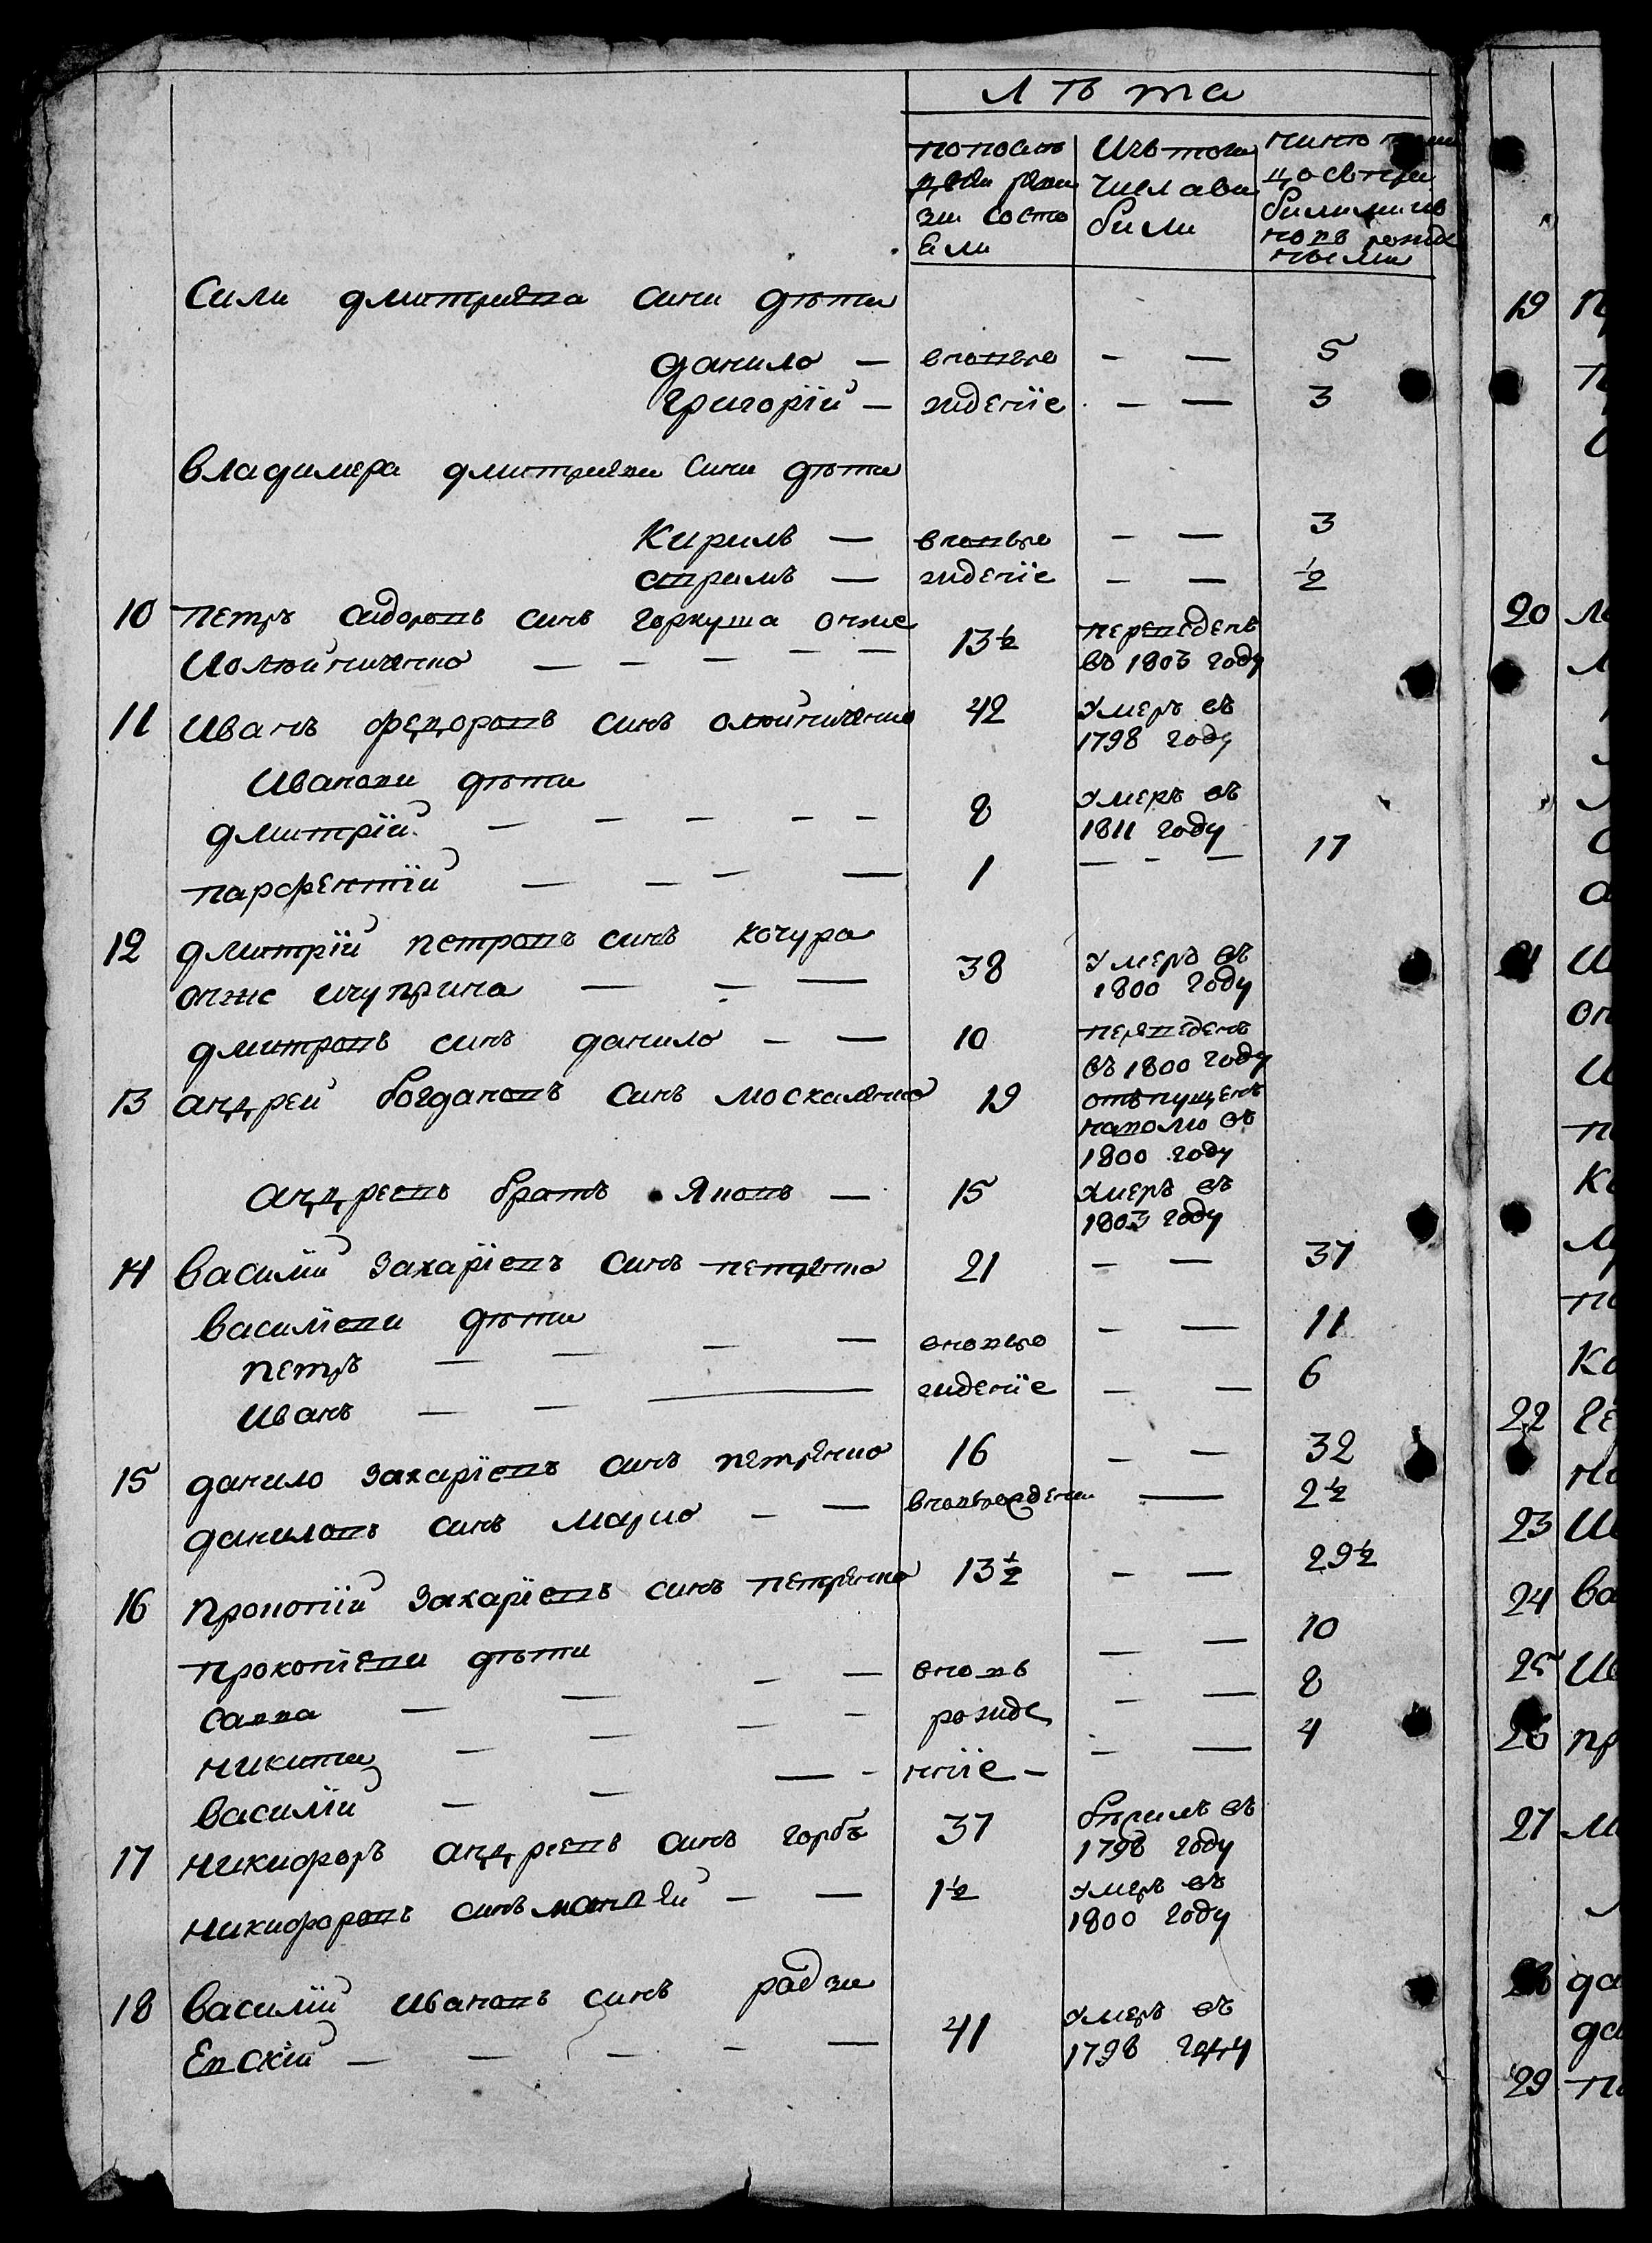 Лѣта
по послѣ
дней реви
зи состо
яли
Изъ того
числа ви
били
били
новъ рожде
Сили дмитриева сини дѣти
данило — вновъро — — 5
григорїй — жденїе — — 3
владимера дмитриева сини дѣти
Кирилъ — вновъро — — 3
— жденїе — — ½
10 петръ сидоровъ синъ горкуша онже 13½ переведенъ
— — — — — въ 1803 году
11 Иванъ федоровъ синъ олюйниченко 42 умеръ въ
1798 году
Иванови дѣти
дмитрїй — — — — — 8 умеръ въ
1811 году
парфентїй — — — — 1 — - — 17
12 дмитрїй петровъ синъ кочура
онже чуприна — — — 38 умеръ въ
1800 году
дмитровъ синъ данило — — 10 переведенъ
въ 1800 году
13 андрей богдановъ синъ москаленко 19 отъпущенъ
наволю въ
1800 году
андреевъ братъ Яковъ — 15 умеръ въ
1803 году
14 василїй захарїевъ синъ петренко 21 — — 37
василїеви дѣти
петръ — — — — вновъро — — 11
Иванъ — — — жденїе — — 6
15 данило захарїевъ синъ петренко 16 — — 32
даниловъ синъ марко — — вновърождении — 2½
16 прокопїй захарїевъ синъ петренко 13½ — — 29½
прокопїеви дѣти
савва — — — — вновъ — — 10
никита — — — — рожде — — 8
василїй — — — - нїе — — — 4
17 никифоръ андреевъ синъ горбъ 37 бѣжилъ въ
1798 году
никифоровъ синъ матвѣй — — 1½ умеръ въ
1800 году
18 василїй ивановъ синъ радзи
Евскїй — — — — — 41 умеръ въ
1798 году
19
20
21
22
23
24
25
26
27
28
29